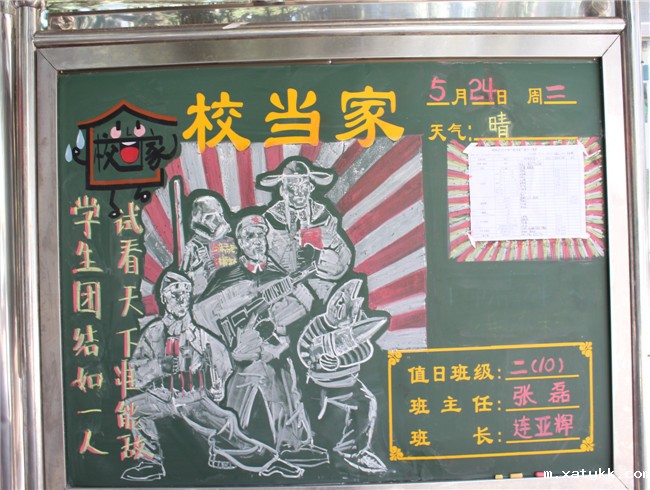 校当家
5月24日 周二
天气：晴
校当家
学生团结如一人
试看天下谁能敌
值日班级：二(10)
班主任：张磊
班长：连亚辉
m.xatukk.com